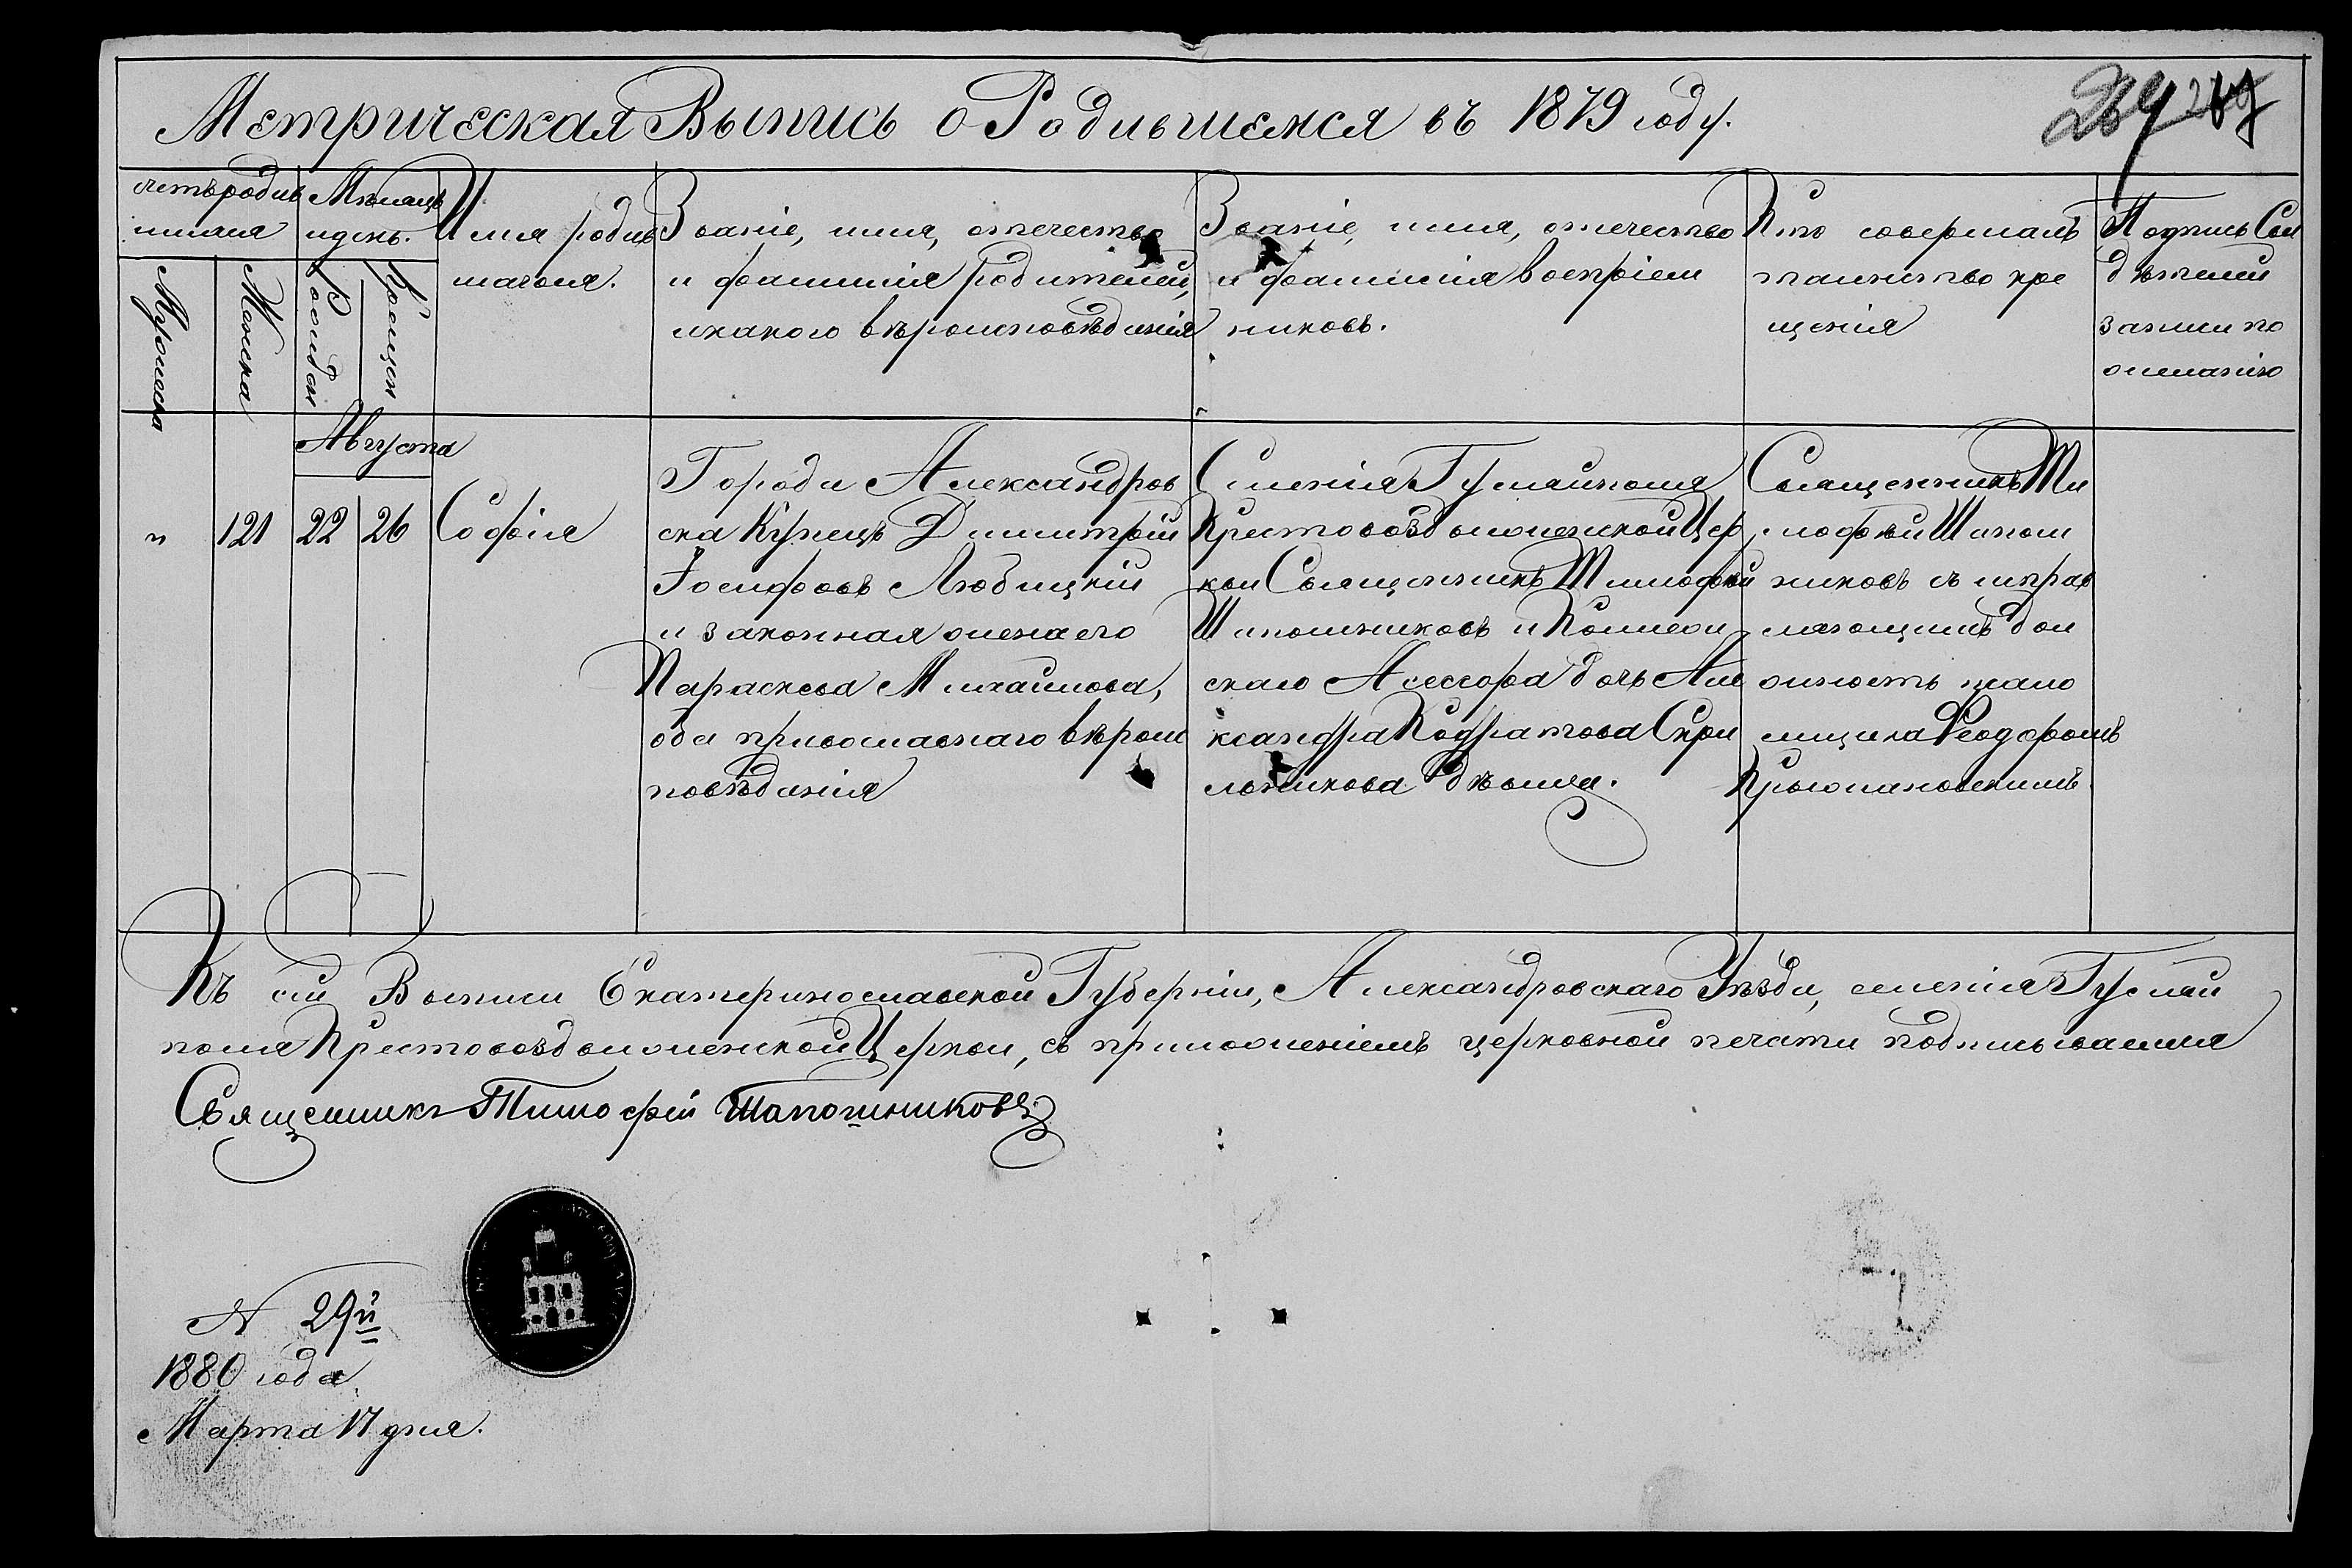 Метрическая Выпись о Родившемся въ 1879 году.
счетъ родив
шихся
Мѣсяцъ
и день.
Мужеска
Женска
Рожден
Крещен
Имя родив
шагося.
Званіе, имя, отечество
и фамилія родителей,
и какого вѣроисповѣданія
Званіе, имя, отечество
и фамилія воспріем
никовъ.
Кто совершалъ
таинство кре
щенія
Подпись Сви
дѣтелей
записи по
желанію
Августа
"
121
22
26
Софія
Города Александров
ска Купецъ Димитрій
Іосифовъ Любицкій
и законная жена его
Параскева Михайлова,
оба православнаго вѣроис
повѣданія
Селенія Гуляйполя
Крестовоздвиженской Цер
кви Священникъ Тимофей
Шапошниковъ и Коллеж
скаго Асессора дочь Але
ксандра Кодратова Скри
дѣвица.
Священникъ Ти
мофей Шапош
никовъ съ исправ
ляющимъ дол
жность псало
мщика Феодоромъ
Крыжановскимъ.
Къ сей Выписи Екатеринославской Губерніи, Александровскаго Уѣзда, селенія Гуляй
поля Крестовоздвиженской Церкви, съ приложеніемъ церковной печати подписываемся
Священникъ Тимофей Шапошниковъ
N 29й
1880 года
Марта 17 дня.